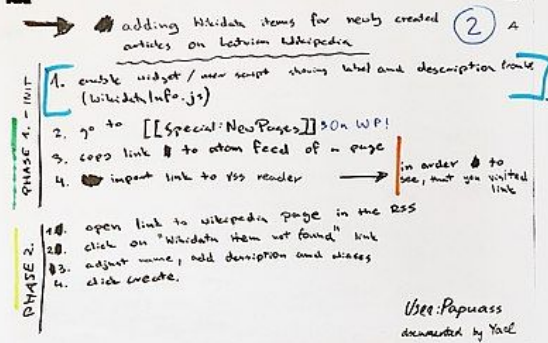 adding Wikidata items for newly created
articles on Latvian Wikipedia
2
A
PHASE 1. - INIT
1. enable widget / user script showing label and description
(WikidataInfo.js)
2. go to [[Special:NewPages]] On WP!
3. copy link to atom feed of a page
4. import link to rss reader
in order to
see, that you visited
link
PHASE 2.
1. open link to wikipedia page in the RSS
2. click on "Wikidata item not found" link
3. adjust name, add description and aliases
4. click create.
User:Papuass
documented by Yael